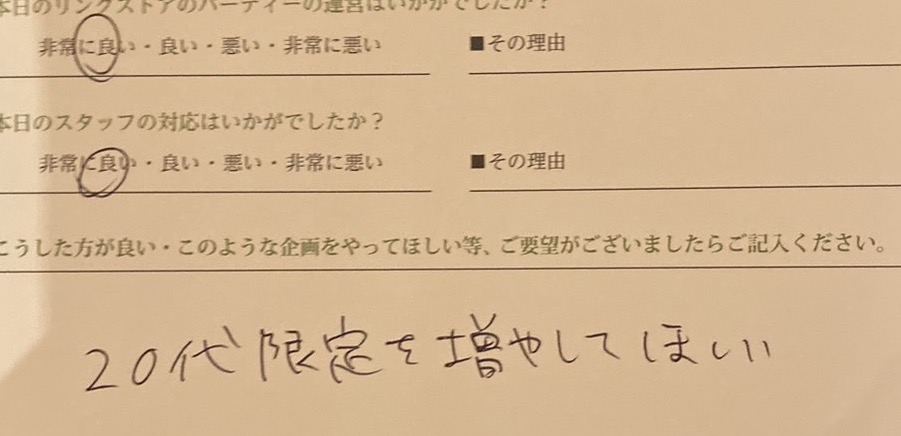 本日のリンクストアのパーティーの運営はいかがでしたか？
非常に良い・良い・悪い・非常に悪い ■その理由
本日のスタッフの対応はいかがでしたか？
非常に良い・良い・悪い・非常に悪い ■その理由
こうした方が良い・このような企画をやってほしい等、ご要望がございましたらご記入ください。
20代限定を増やしてほしい